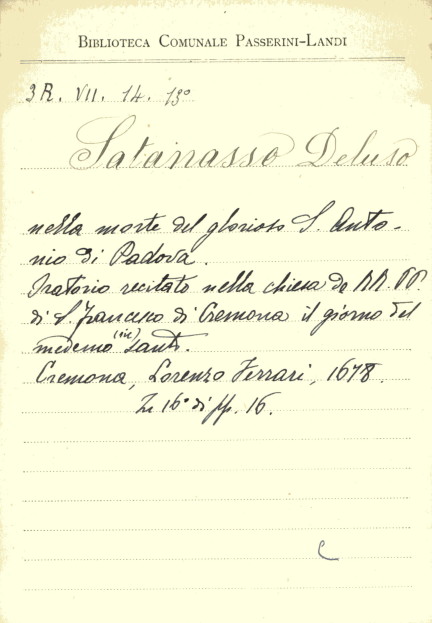 BIBLIOTECA COMUNALE PASSERINI-LANDI
3R. VII. 14. 13º
Satanasso Deluso
nella morte del glorioso S. Anto-
nio di Padova.
Oratorio recitato nella chiesa de RR. PP.
di S. Francesco di Cremona il giorno del
medemo (sic) santo.
Cremona, Lorenzo Ferrari, 1678.
In 16º di pp. 16.